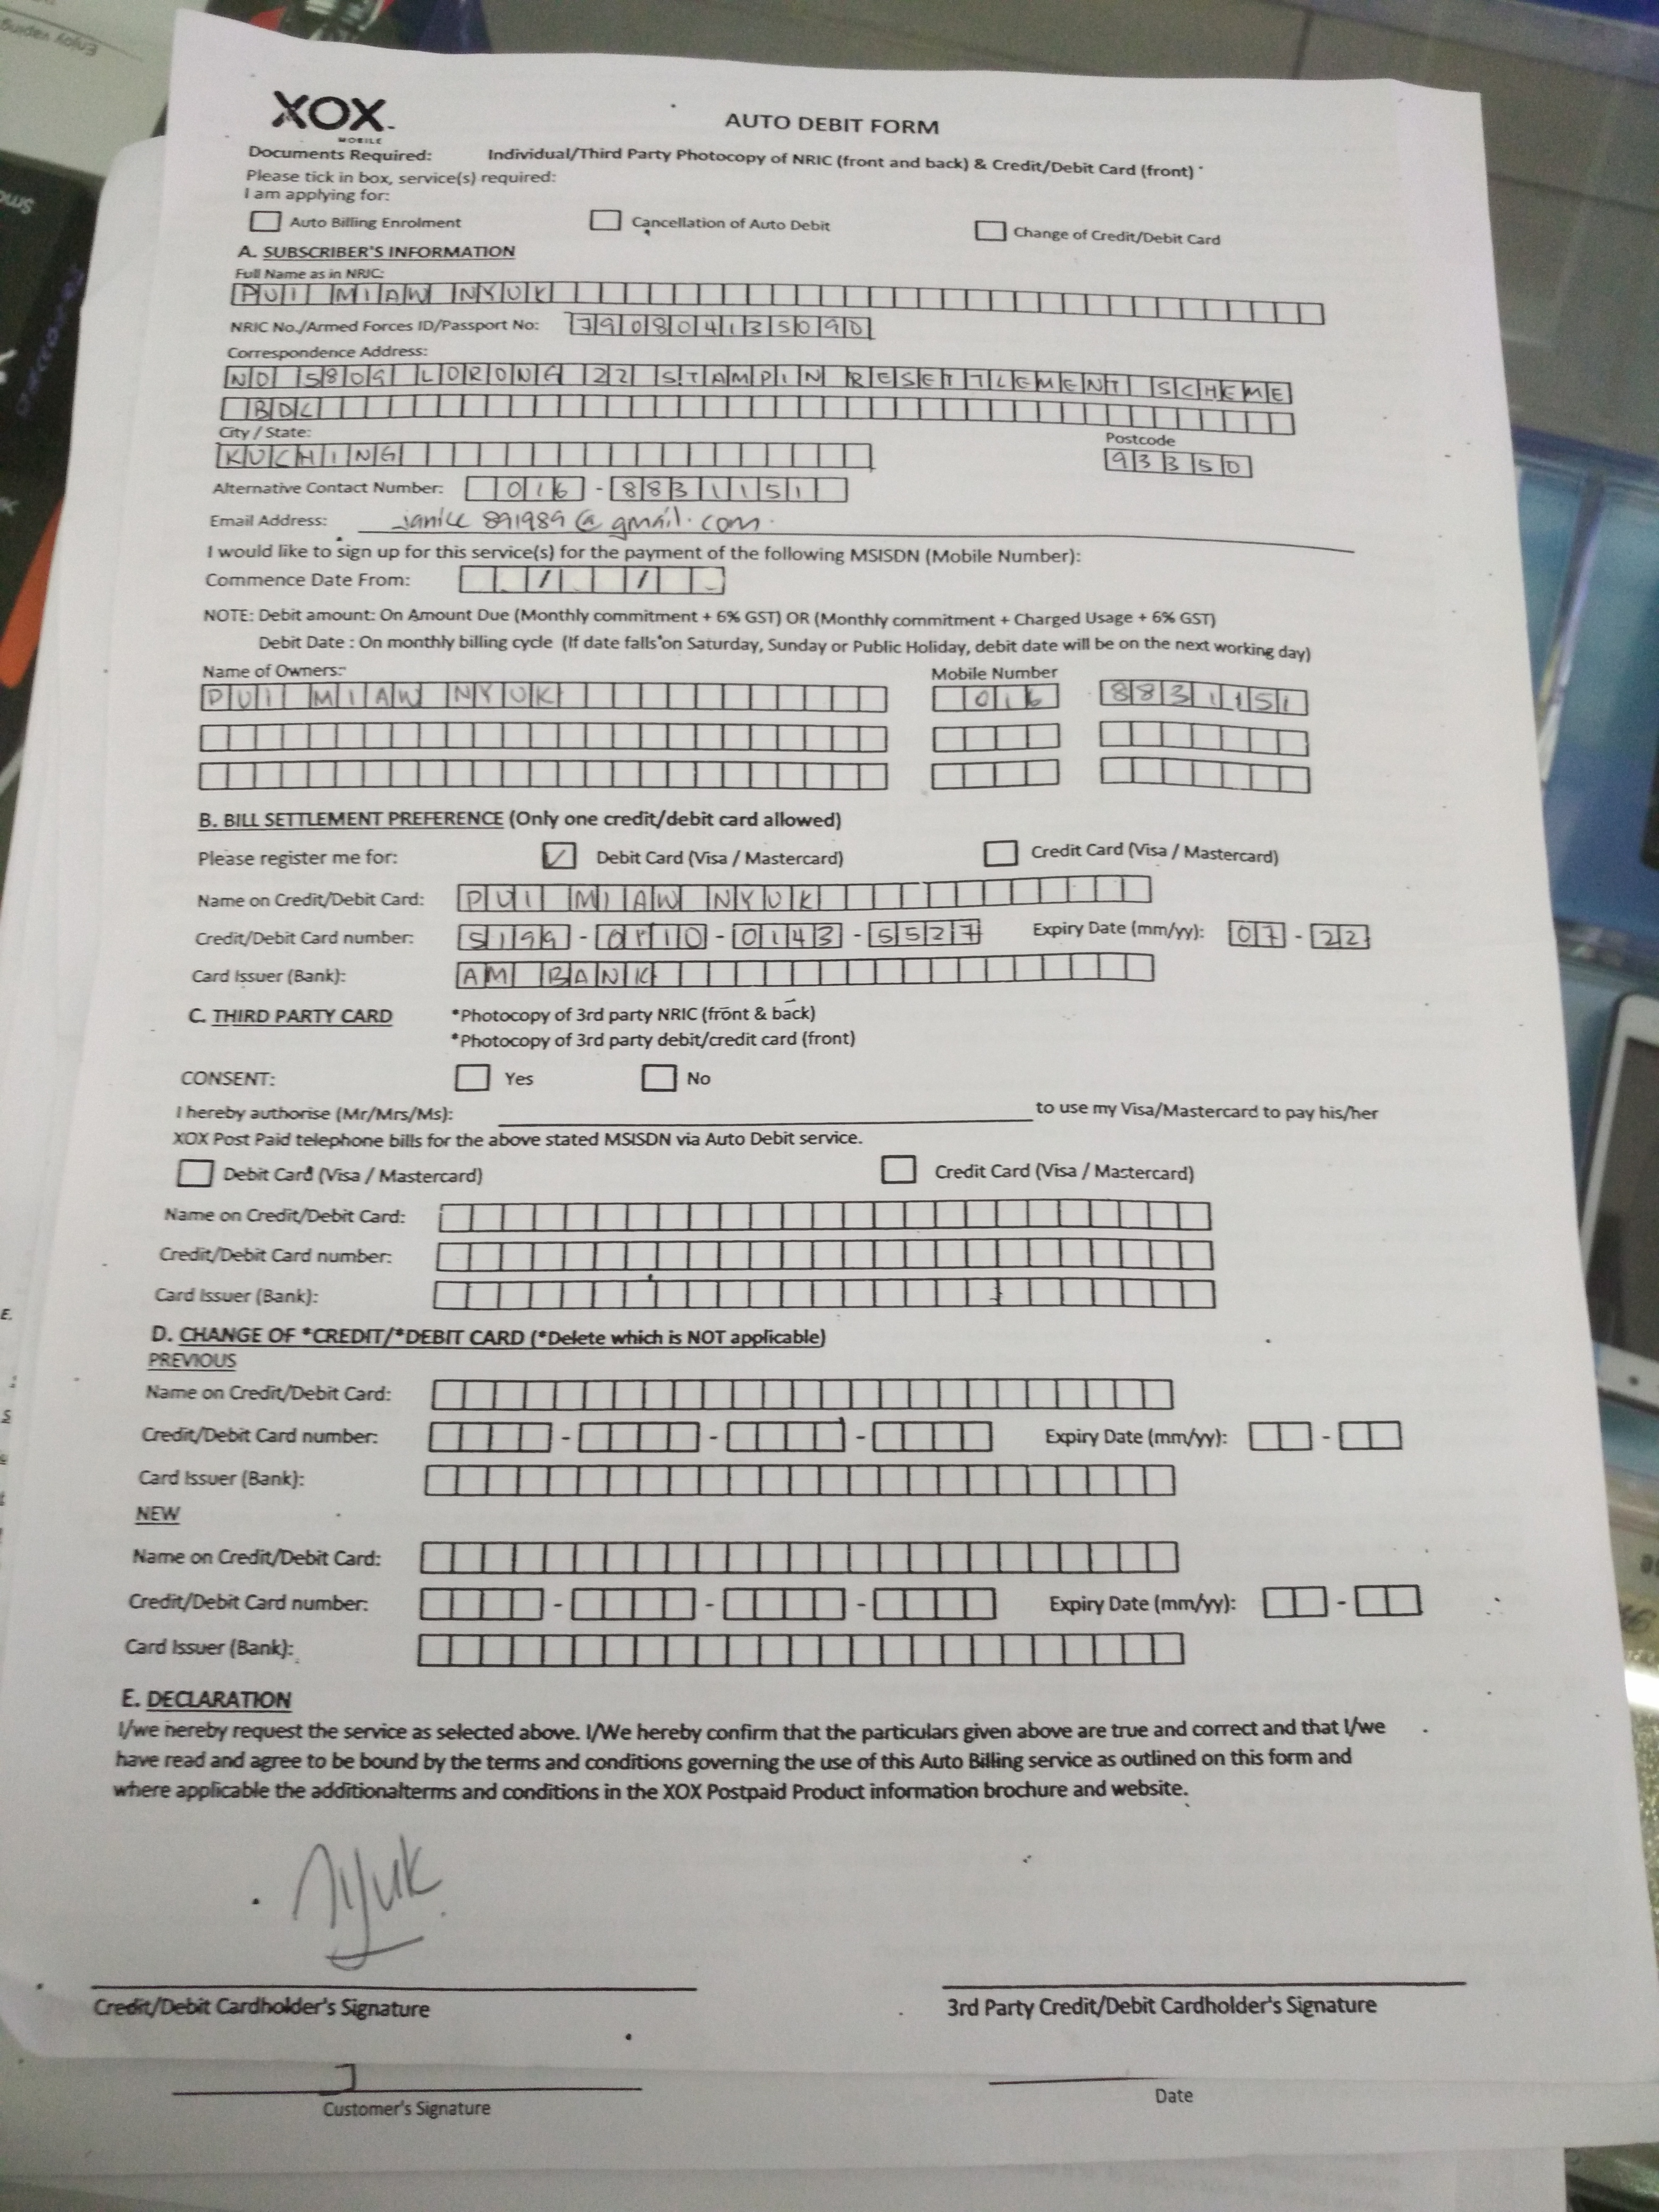 Enjoy vaping
XOX
MOBILE
AUTO DEBIT FORM
Documents Required: Individual/Third Party Photocopy of NRIC (front and back) & Credit/Debit Card (front) *
Please tick in box, service(s) required:
I am applying for:
Auto Billing Enrolment Cancellation of Auto Debit Change of Credit/Debit Card
A. SUBSCRIBER'S INFORMATION
Full Name as in NRIC:
PUI MIAW NYUK
NRIC No./Armed Forces ID/Passport No: 790804135090
Correspondence Address:
NO 5809 LORONG 22 STAMPIN RESETTLEMENT SCHEME
BDC
City / State:
KUCHING
Postcode
93350
Alternative Contact Number: 016 - 8831151
Email Address: janice 891989@gmail.com.
I would like to sign up for this service(s) for the payment of the following MSISDN (Mobile Number):
Commence Date From: / /
NOTE: Debit amount: On Amount Due (Monthly commitment + 6% GST) OR (Monthly commitment + Charged Usage + 6% GST)
Debit Date : On monthly billing cycle (If date falls on Saturday, Sunday or Public Holiday, debit date will be on the next working day)
Name of Owners: Mobile Number
PUI MIAW NYUK 016 8831151
B. BILL SETTLEMENT PREFERENCE (Only one credit/debit card allowed)
Please register me for: ✓ Debit Card (Visa / Mastercard) Credit Card (Visa / Mastercard)
Name on Credit/Debit Card: PUI MIAW NYUK
Credit/Debit Card number: 5199 - - 0143 - 5527 Expiry Date (mm/yy): 07 - 22
Card Issuer (Bank): AM BANK
C. THIRD PARTY CARD *Photocopy of 3rd party NRIC (front & back)
*Photocopy of 3rd party debit/credit card (front)
CONSENT: Yes No
I hereby authorise (Mr/Mrs/Ms): to use my Visa/Mastercard to pay his/her
XOX Post Paid telephone bills for the above stated MSISDN via Auto Debit service.
Debit Card (Visa / Mastercard) Credit Card (Visa / Mastercard)
Name on Credit/Debit Card:
Credit/Debit Card number:
Card Issuer (Bank):
D. CHANGE OF *CREDIT/*DEBIT CARD (*Delete which is NOT applicable)
PREVIOUS
Name on Credit/Debit Card:
Credit/Debit Card number: - - - Expiry Date (mm/yy): -
Card Issuer (Bank):
NEW
Name on Credit/Debit Card:
Credit/Debit Card number: - - - Expiry Date (mm/yy): -
Card Issuer (Bank):
E. DECLARATION
I/we hereby request the service as selected above. I/We hereby confirm that the particulars given above are true and correct and that I/we
have read and agree to be bound by the terms and conditions governing the use of this Auto Billing service as outlined on this form and
where applicable the additionalterms and conditions in the XOX Postpaid Product information brochure and website.
Nyuk
Credit/Debit Cardholder's Signature 3rd Party Credit/Debit Cardholder's Signature
Customer's Signature Date